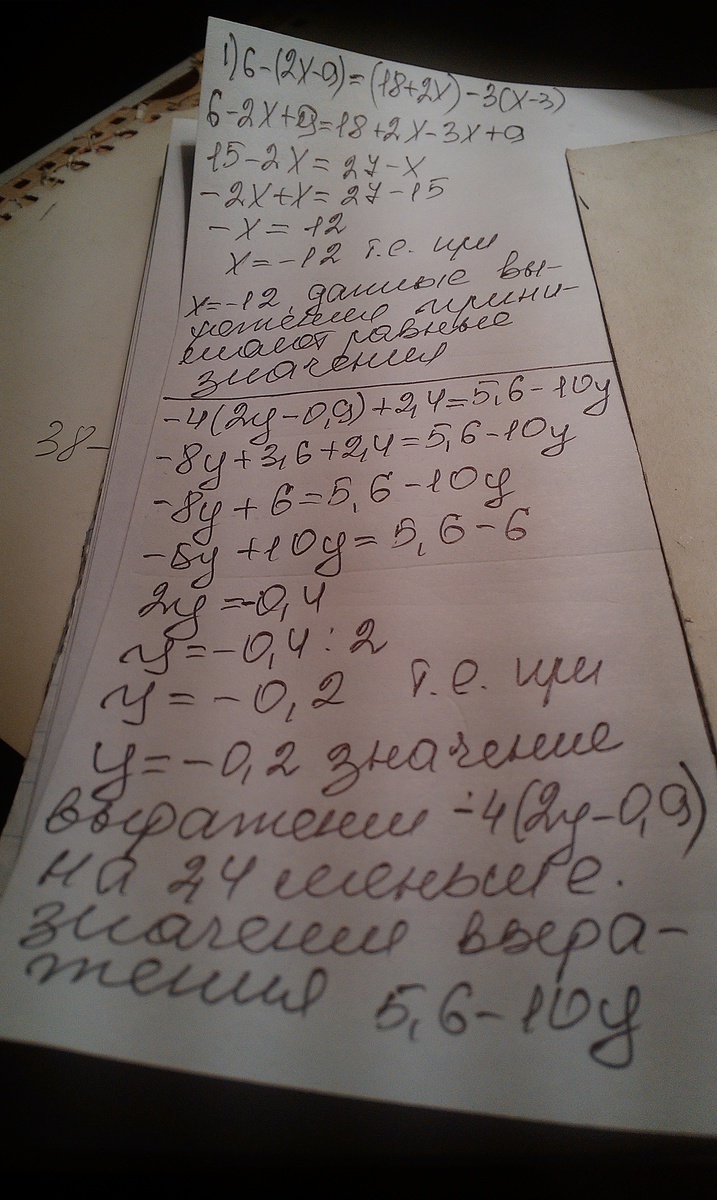 1) 6-(2x-9)=(18+2x)-3(x-3)
6-2x+9=18+2x-3x+9
15-2x=27-x
-2x+x=27-15
-x=12
x=-12 т.е. при
x=-12, данные вы-
ражения прини-
мают равные
значения
-4(2y-0,9)+2,4=5,6-10y
38-
-8y+3,6+2,4=5,6-10y
-8y+6=5,6-10y
-8y+10y=5,6-6
2y=-0,4
y=-0,4:2
y=-0,2 т.е. при
y=-0,2 значение
выражении -4(2y-0,9)
на 24 меньше.
значении выра-
жения 5,6-10y